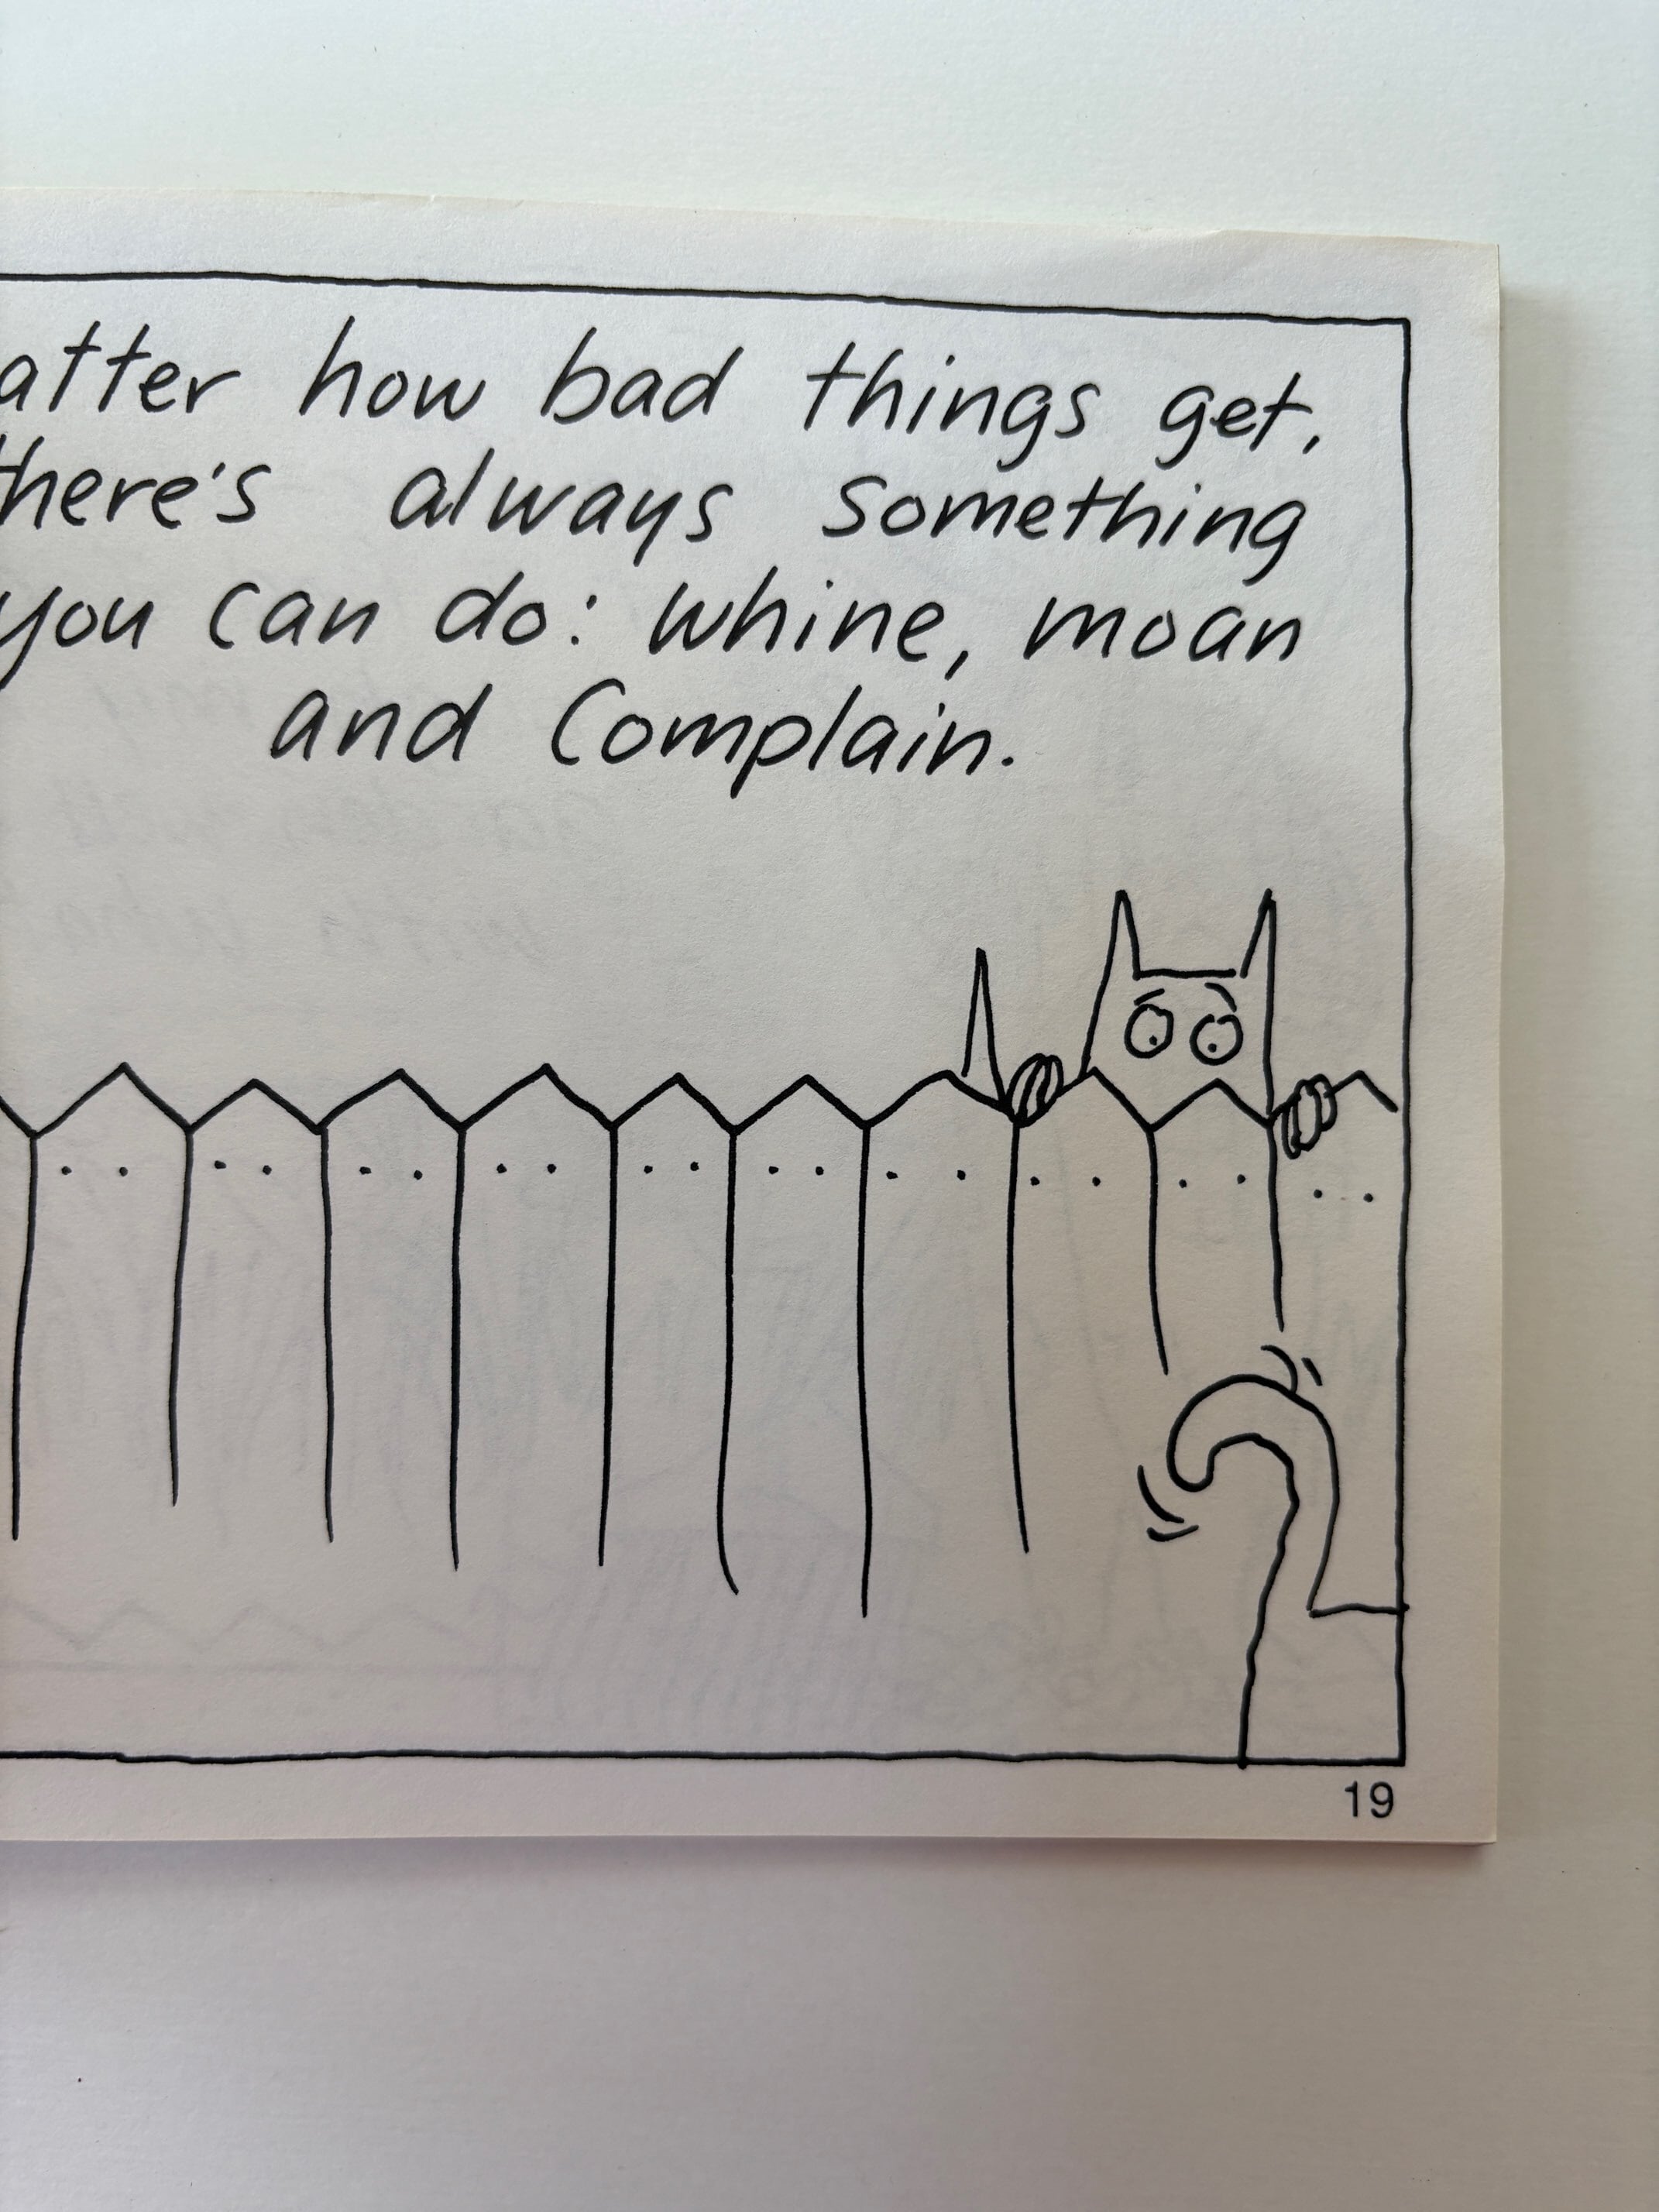 atter how bad things get,
there's always something
you can do: whine, moan
and complain.
19